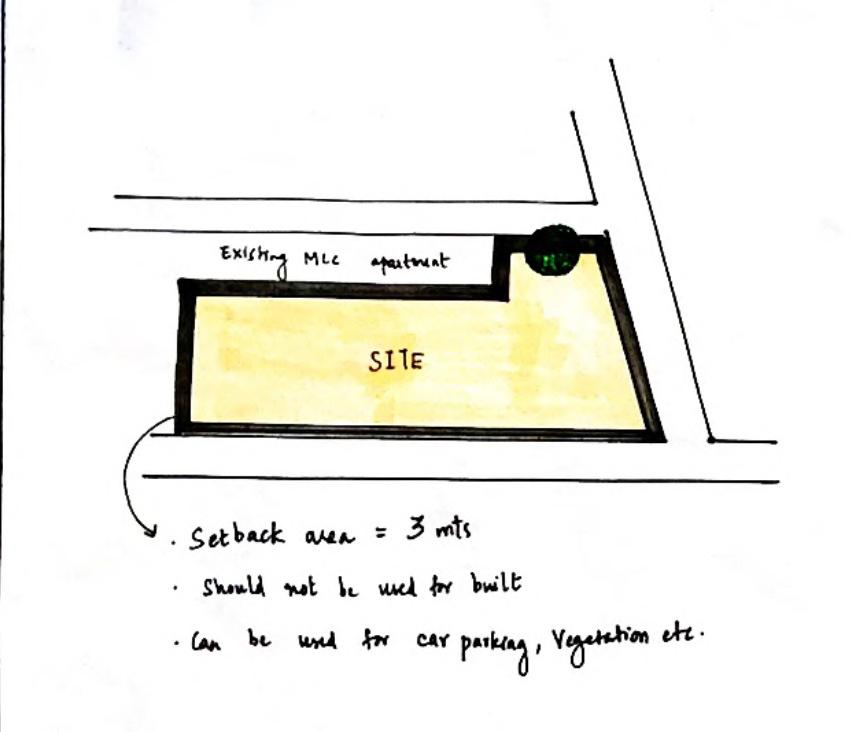 Existing MLC apartment
SITE
. Setback area = 3 mts
. Should not be used for built
. Can be used for car parking, Vegetation etc.